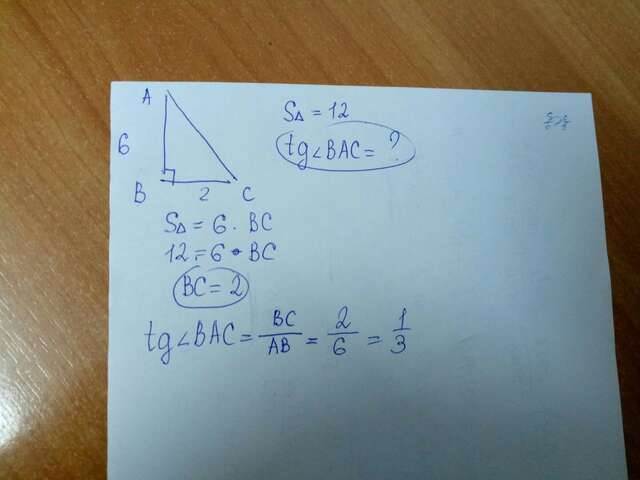 A
6
B
2
C
S△ = 12
tg∠BAC = ?
S△ = 6 · BC
12 = 6 · BC
BC = 2
tg∠BAC = BC/AB = 2/6 = 1/3